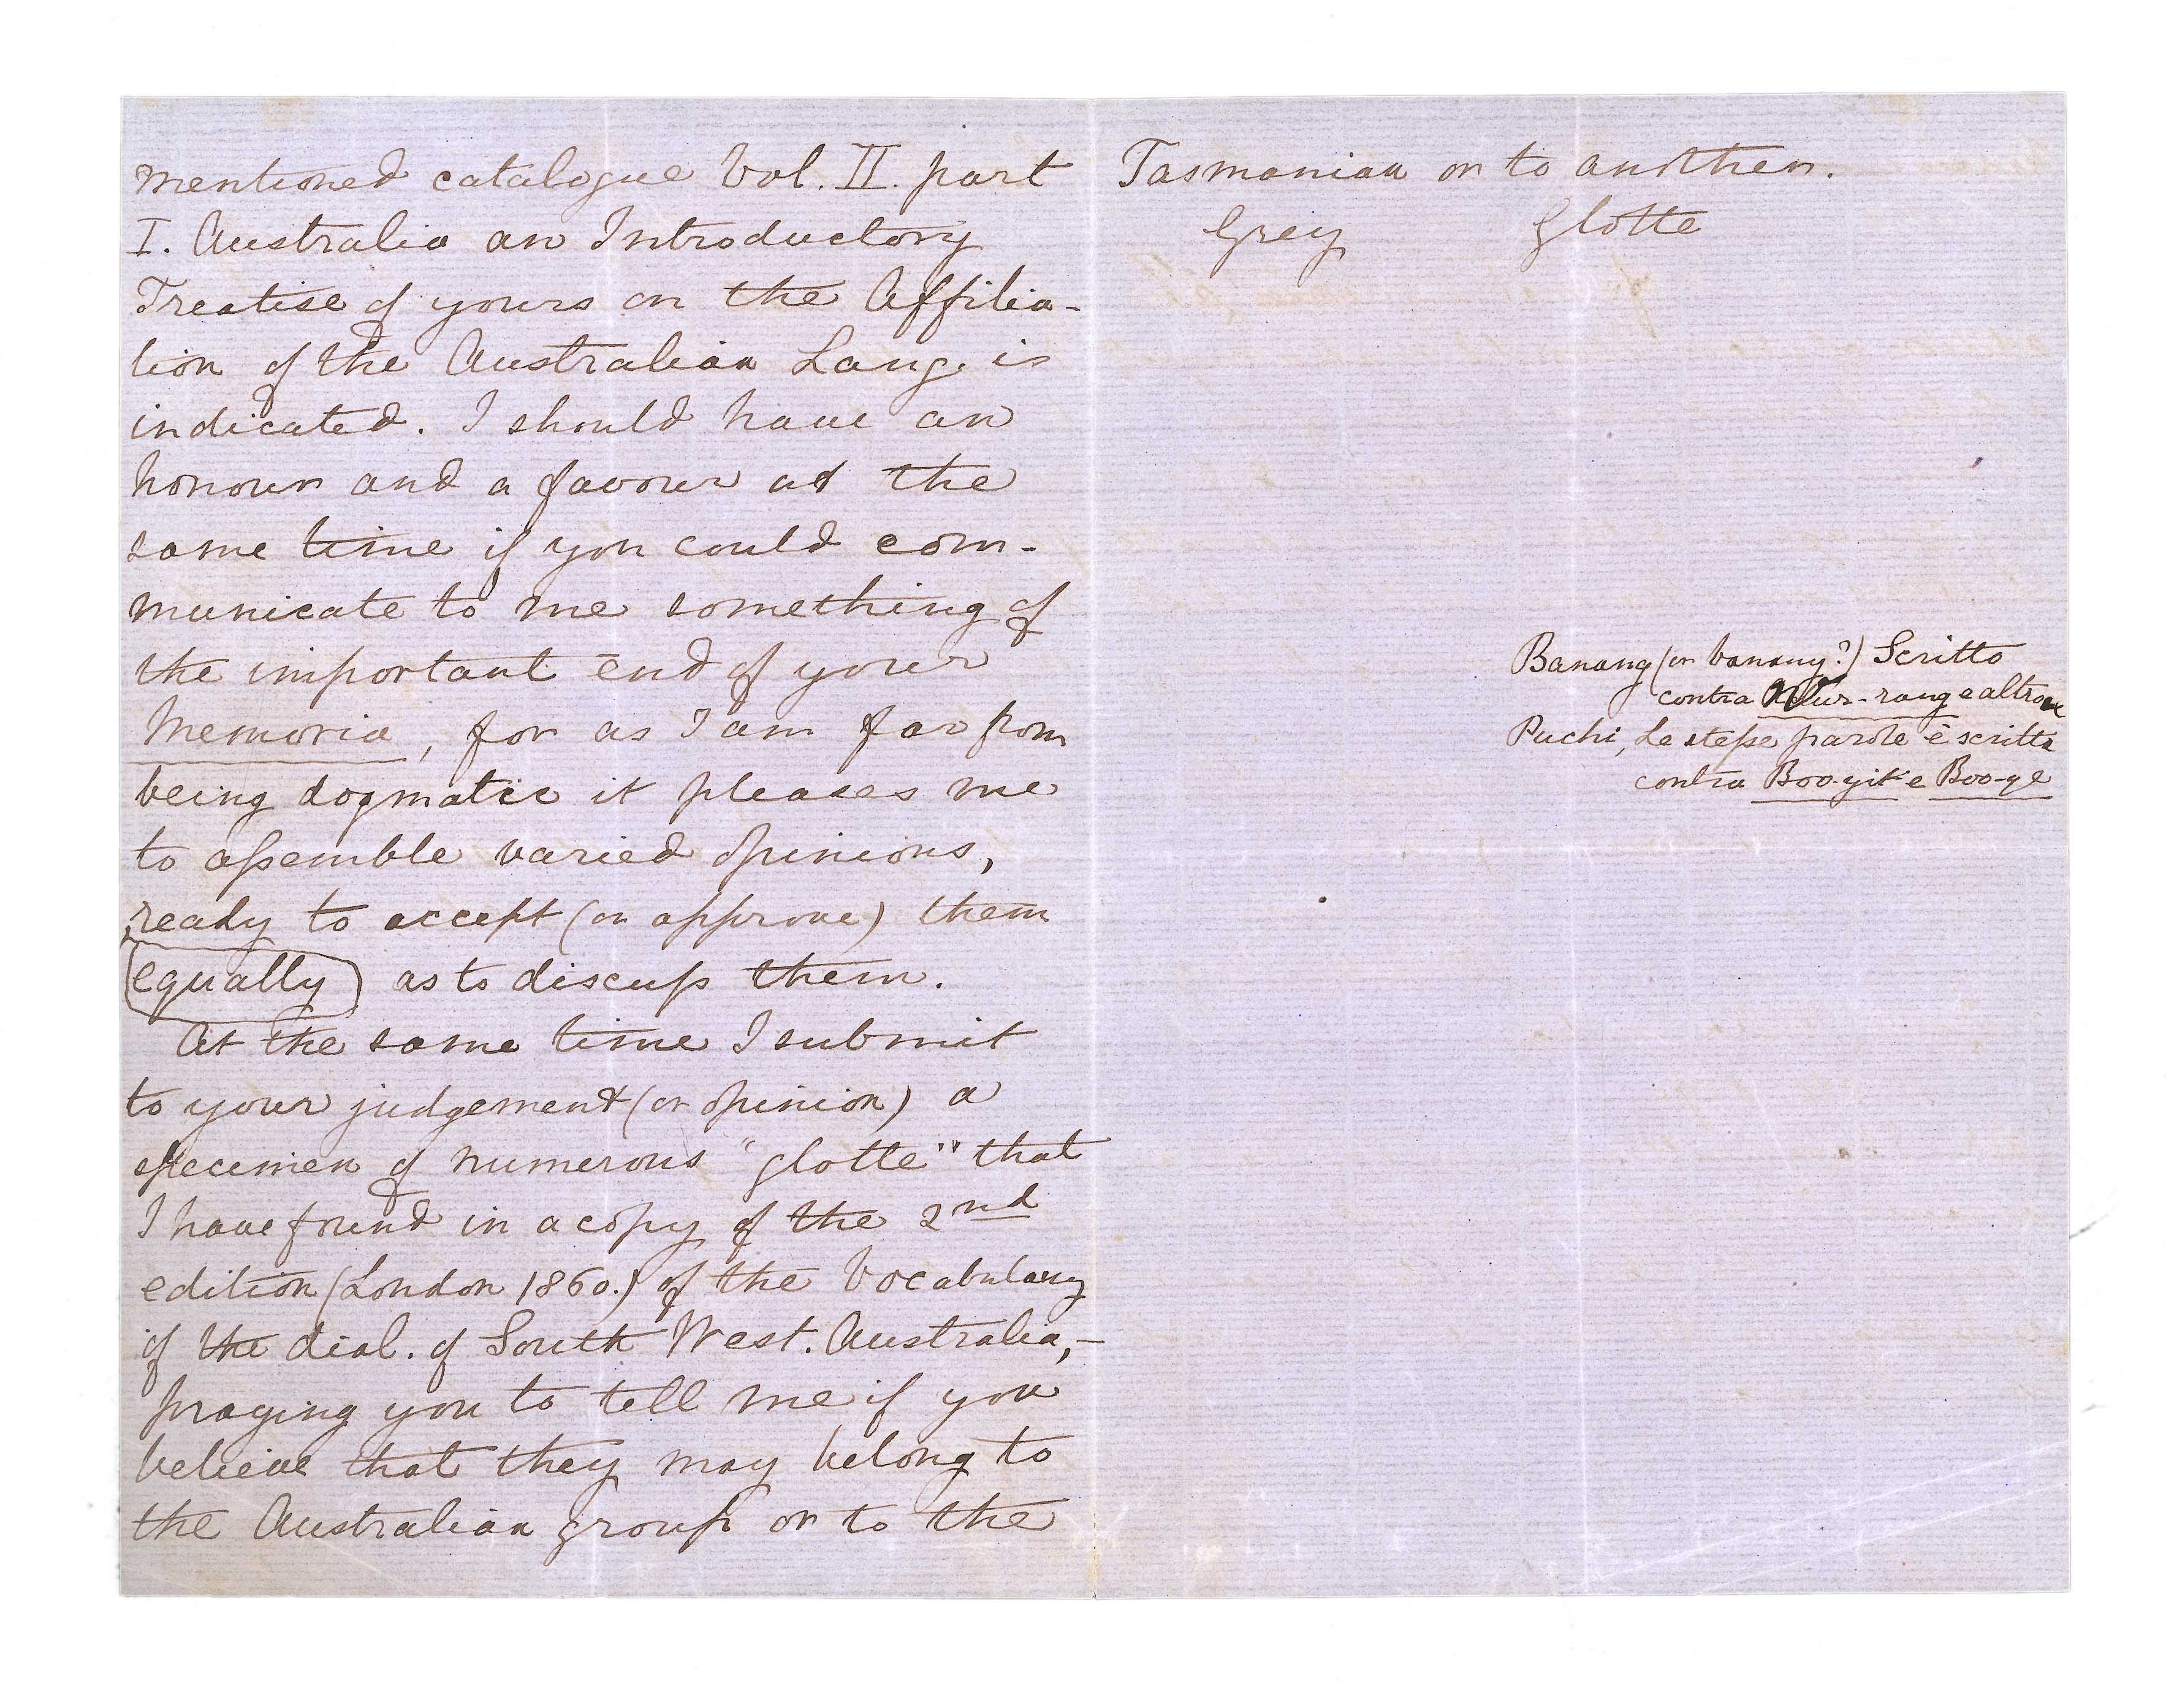 mentioned catalogue Vol. II. part
I. Australia an Introductory
Treatise of yours on the Affilia-
tion of the Australian Lang. is
indicated. I should have an
honour and a favour at the
same time if you could com-
municate to me something of
the important end of your
Memoria, for as I am far from
being dogmatic it pleases me
to assemble varied opinions,
ready to accept (or approve) them
equally as to discuss them.
At the same time I submit
to your judgement (or opinion) a
specimen of numerous "glotte" that
I have found in a copy of the 2nd
edition (London 1860.) of the Vocabulary
of the dial. of South West. Australia,-
praying you to tell me if you
believe that they may belong to
the Australian group or to the
Tasmanian or to another.
Grey Glotte
Banang (or banany?) Scritto
contra -rang e altro
Puchi, Le stesse parole è scritta
contra Boo-yit e Boo-ye